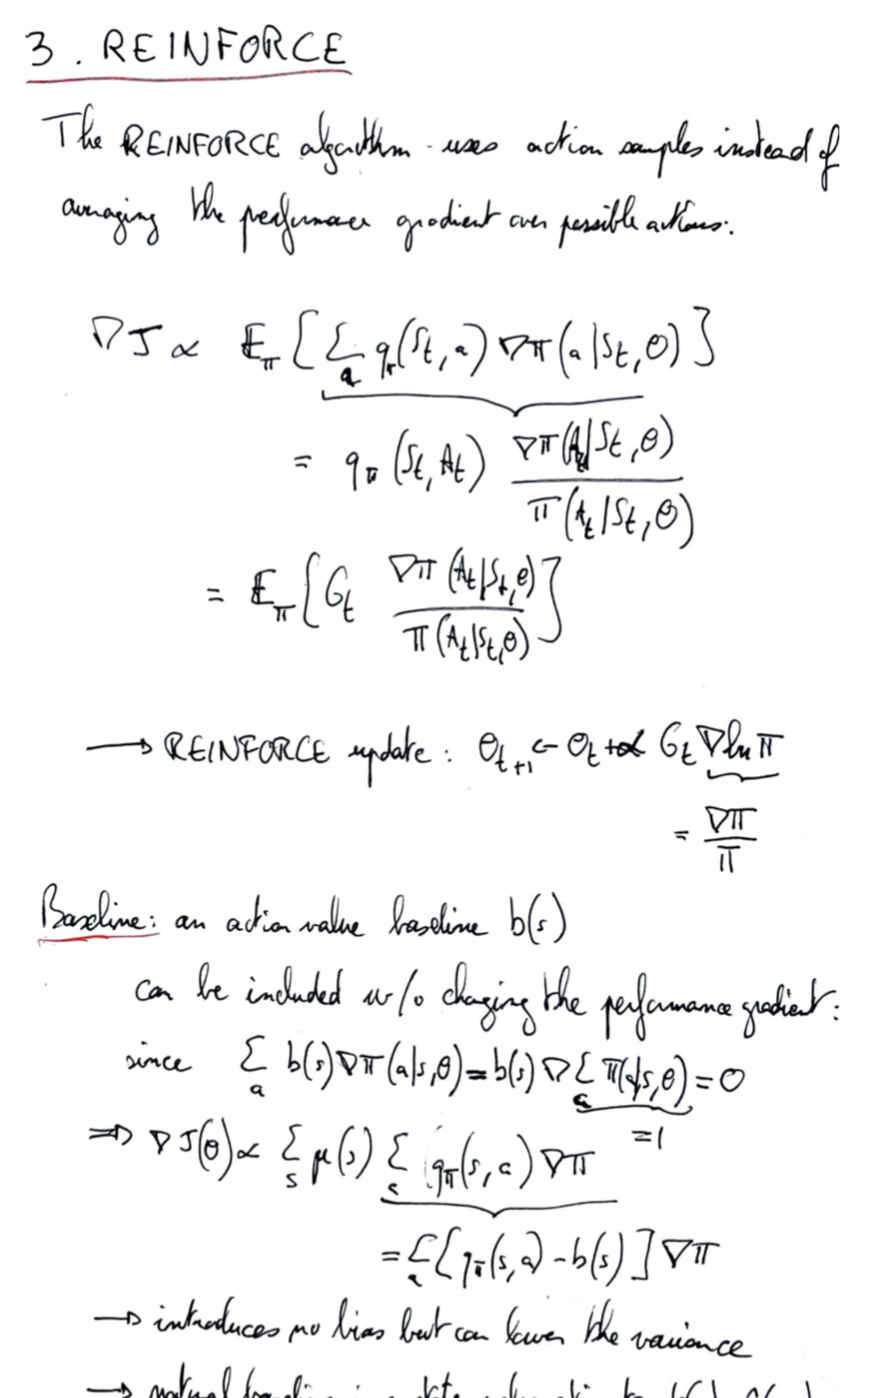 3. REINFORCE
The REINFORCE algorithm uses action samples instead of
averaging the performance gradient over possible actions.
∇J ∝ E_π [ Σ_a q_π(S_t, a) ∇π(a|S_t, θ) ]
= q_π (S_t, A_t) ∇π(A_t|S_t, θ) / π(A_t|S_t, θ)
= E_π [ G_t ∇π(A_t|S_t, θ) / π(A_t|S_t, θ) ]
→ REINFORCE update: θ_{t+1} ← θ_t + α G_t ∇ln π
= ∇π / π
Baseline: an action value baseline b(s)
can be included w/o changing the performance gradient:
since Σ_a b(s) ∇π(a|s, θ) = b(s) ∇ Σ_a π(a|s, θ) = 0
=1
⇒ ∇J(θ) ∝ Σ_s μ(s) Σ_a q_π(s, a) ∇π
= Σ_a [ q_π(s, a) - b(s) ] ∇π
→ introduces no bias but can lower the variance
→ natural baseline is